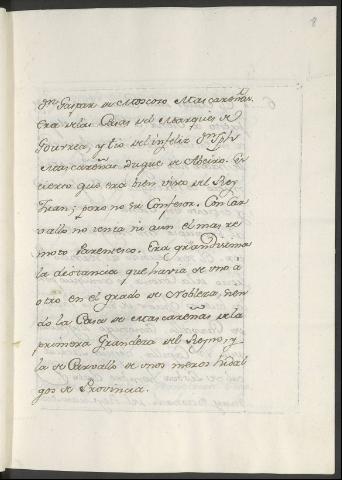 8
Dn. Gaspar de Moscoso Mascareñas.
Era delas Casas del Marques de
Gouvea, y tio del infeliz Dn. Jph
Mascareñas Duque de Abeiro. Es
cierto que era bien visto del Rey
Juan; pero no su Confesor. Con Car
vallo no tenia ni aun el mas re
moto Parentesco. Era grandisima
la distancia que havia de uno à
otro en el grado de Nobleza, sien
do la Casa de Mascareñas dela
primera Grandeza del Reyno, y
la de Carvallo de unos meros hidal
gos de Provincia.